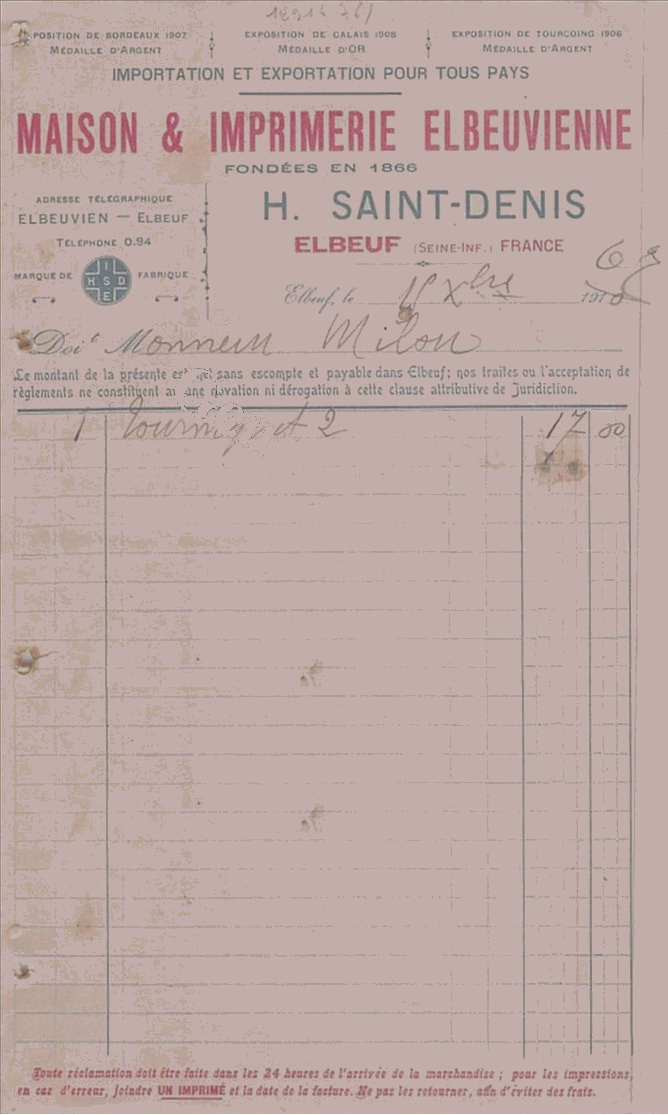 EXPOSITION DE BORDEAUX 1907
MÉDAILLE D'ARGENT
EXPOSITION DE CALAIS 1908
MÉDAILLE D'OR
EXPOSITION DE TOURCOING 1906
MÉDAILLE D'ARGENT
IMPORTATION ET EXPORTATION POUR TOUS PAYS
MAISON & IMPRIMERIE ELBEUVIENNE
FONDÉES EN 1866
ADRESSE TÉLÉGRAPHIQUE
ELBEUVIEN — ELBEUF
TÉLÉPHONE 0.94
MARQUE DE FABRIQUE
I
H S D
E
H. SAINT-DENIS
ELBEUF (SEINE-INF.) FRANCE
Elbeuf, le 15 Xbre 191
Doit Monsieur Milon
Le montant de la présente est net sans escompte et payable dans Elbeuf; nos traites ou l'acceptation de
règlements ne constituent ni une novation ni dérogation à cette clause attributive de Juridiction.
1 Tourniquet 2 17 00
Toute réclamation doit être faite dans les 24 heures de l'arrivée de la marchandise; pour les impressions,
en cas d'erreur, joindre UN IMPRIMÉ et la date de la facture. Ne pas les retourner, afin d'éviter des frais.